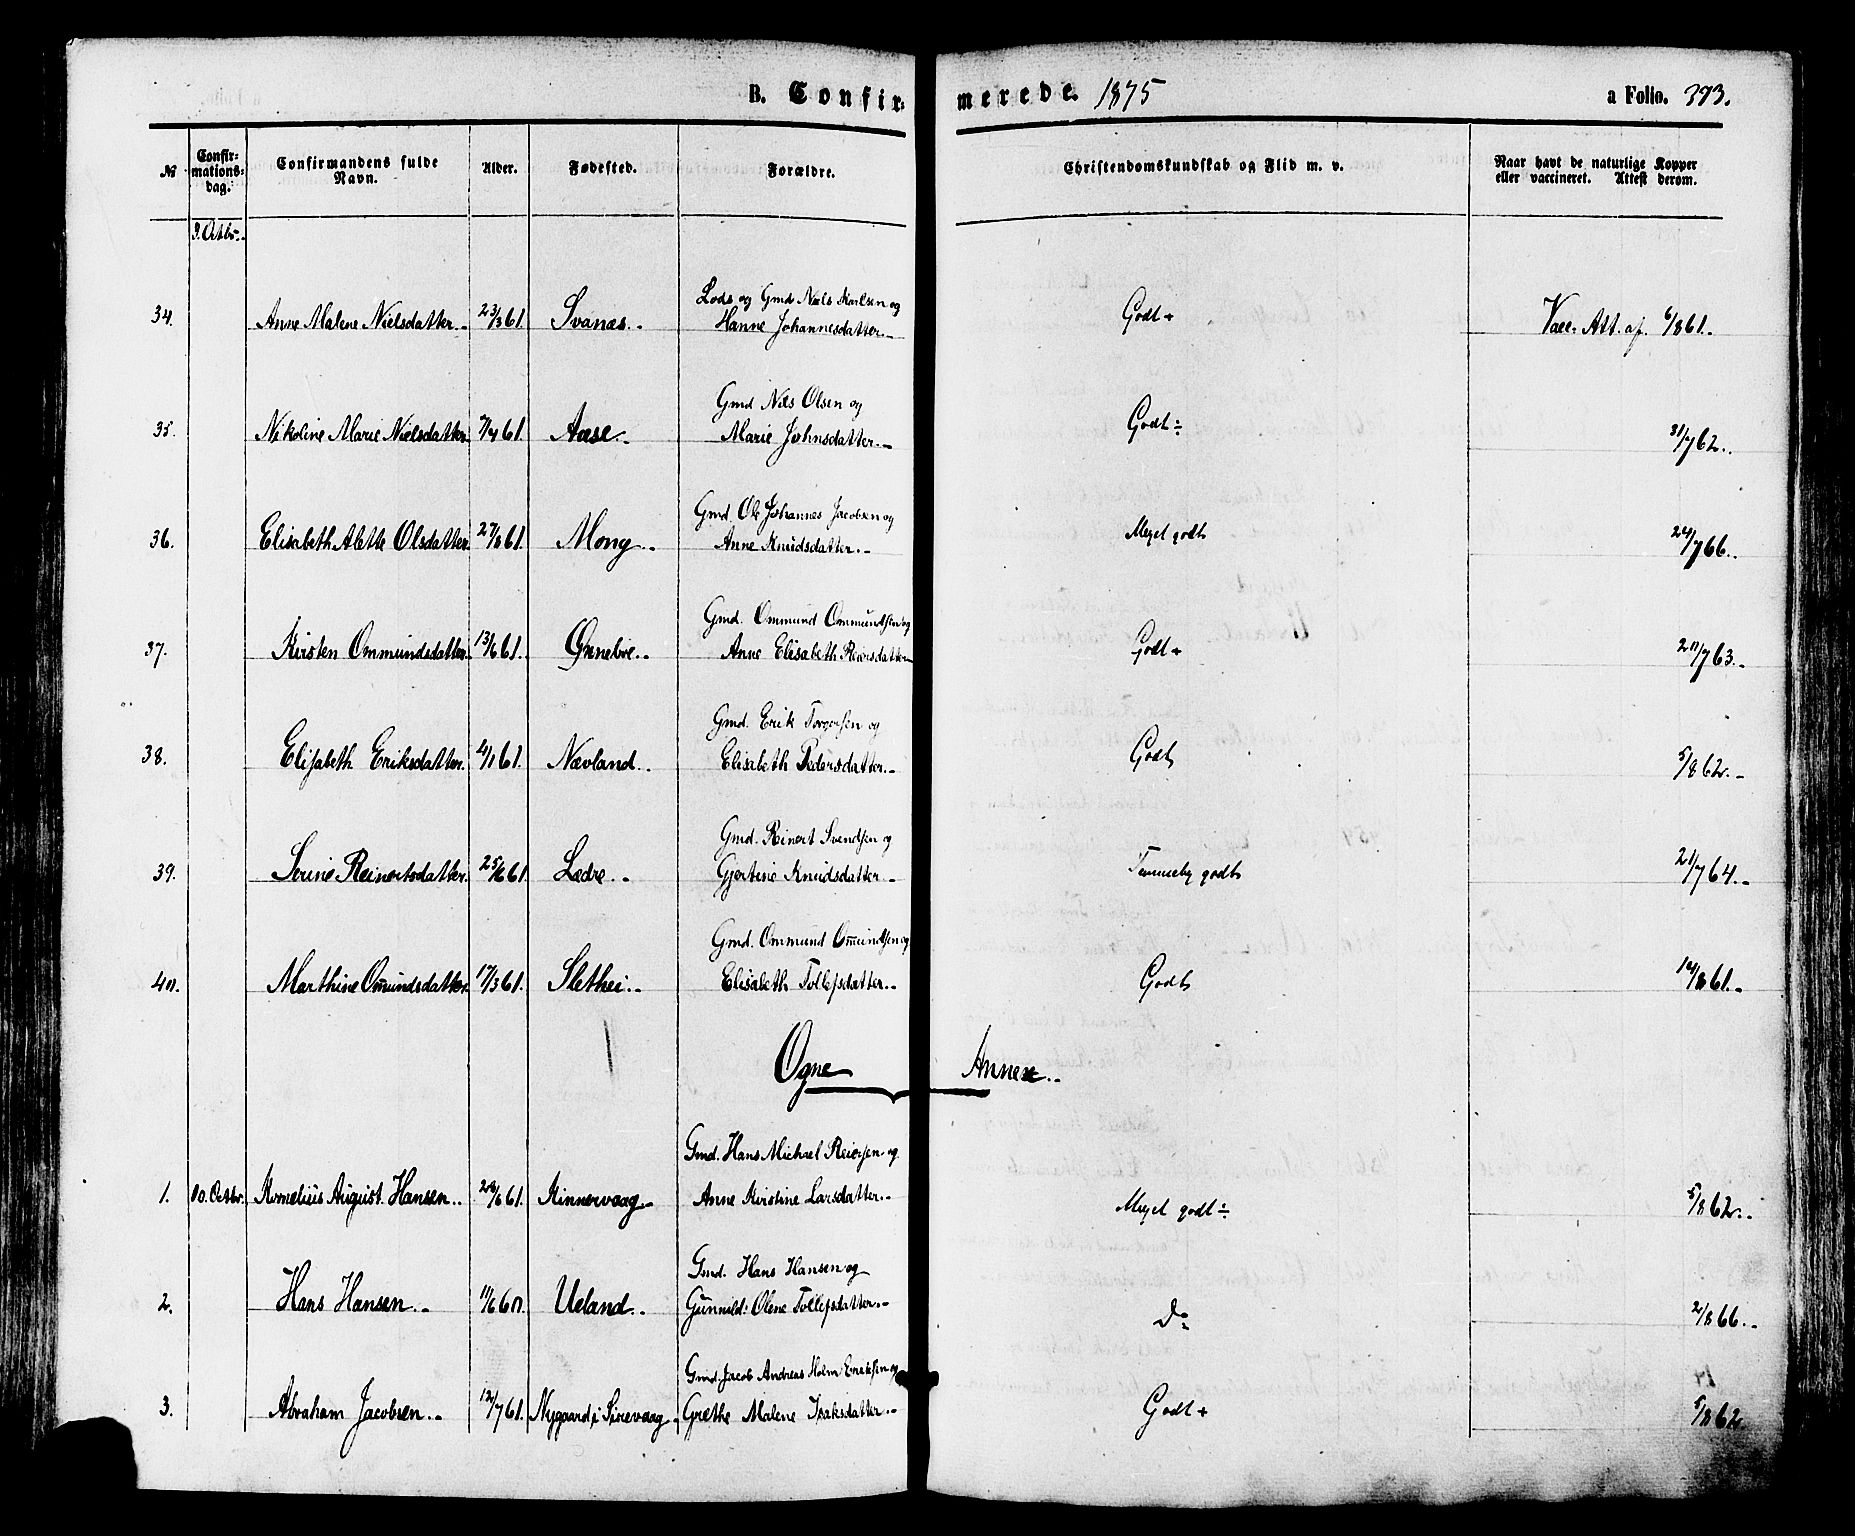 B. Confirmerede. 1875 a Folio. 393.
No Confirmationsdag. Confirmandens fulde Navn. Alder. Fødested. Forældre. Christendomskundskab og Flid m. v. Naar havt de naturlige Kopper eller vaccineret. Attest derom.
3. Octbr.
Lods og Gmd Niels Karlsen og
34. Anne Malene Nielsdatter. 23/3 61. Svanæs. Hanne Johannesdatter. Godt + Vacc. Att. af. 6/8 61.
Gmd Nils Olsen og
35. Nikoline Marie Nielsdatter. 7/4 61. Aase. Marie Johnsdatter. Godt ÷ 31/7 62.
Gmd. Ole Johannes Jacobsen og
36. Elisabeth Alette Olsdatter. 27/8 61. Mong. Anne Knudsdatter. Meget godt 24/7 66.
Gmd. Ommund Ommundsen og
37. Kirsten Ommundsdatter. 13/6 61. Grønebøe. Anne Elisabeth Reiersdatter Godt + 20/7 63.
Gmd. Erik Torgersen og
38. Elisabeth Eriksdatter. 4/1 61. Nævland. Elisabeth Pedersdatter. Godt 5/8 62.
Gmd. Reinert Svendsen og
39. Serine Reinertsdatter. 25/6 61. Lædre. Gjertine Knudsdatter. Temmelig godt 21/7 64.
Gmd. Ommund Omundsen og
40. Marthine Omundsdatter. 17/3 61. Slethei. Elisabeth Tollefsdatter. Godt 14/8 61.
Ogne Annex.
Gmd. Hans Michael Reiersen og
1. 10. Octbr. Kornelius August Hansen. 24/6 61. Kinnervaag. Anne Kirstine Larsdatter. Meget godt ÷ 5/8 62.
Gmd. Hans Hansen og
2. Hans Hansen. 11/6 60. Ueland. Gunnild Olene Tollefsdatter. Do 2/8 66.
Gmd. Jacob Andreas Holm Eriksen og
3. Abraham Jacobsen. 12/7 61. Nygaard i Sirevaag. Grethe Malene Isaksdatter. Godt + 5/8 62.